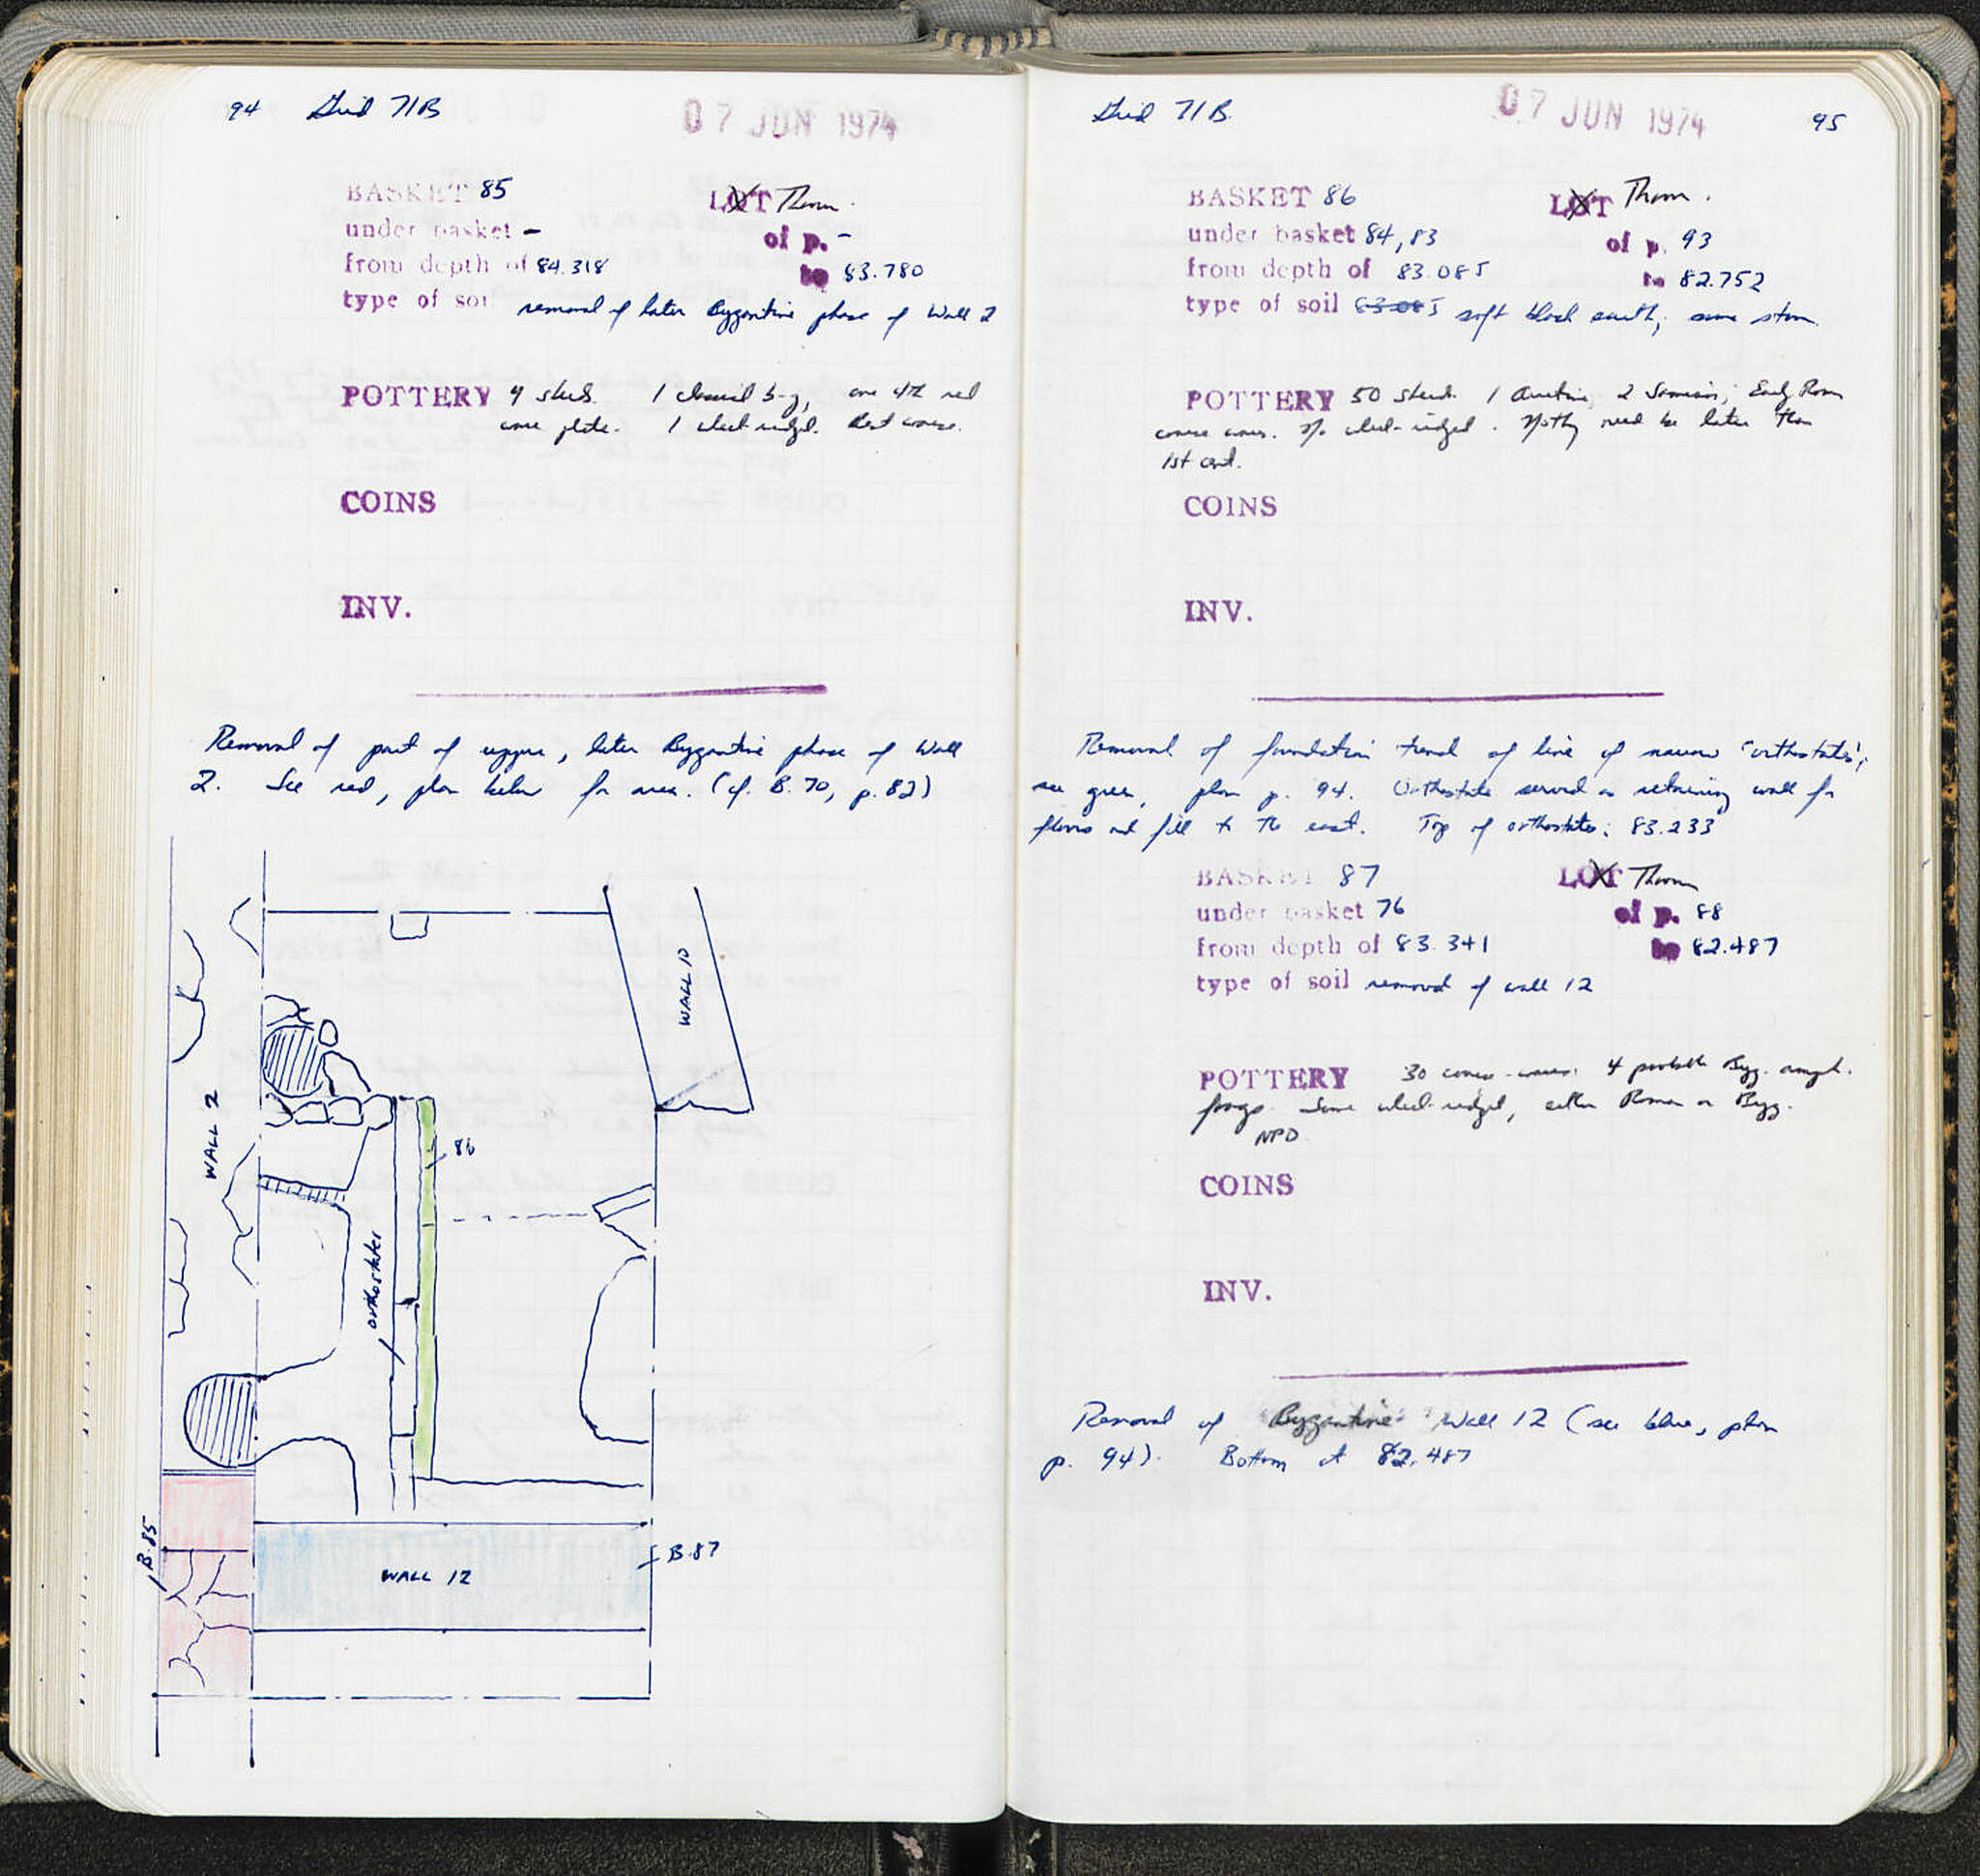 94 Grid 71B 07 JUN 1974
BASKET 85 LOT Thrown.
under basket – of p. –
from depth of 84.318 to 83.780
type of soil removal of later Byzantine phase of Wall 2
POTTERY 4 sherds. 1 classical b-g, one 4th red
ware plate. 1 wheel-ridged. Rest coarse.
COINS
INV.
Removal of part of upper, later Byzantine phase of Wall
2. See red, plan below for area. (cf. B. 70, p. 82)
WALL 10
WALL 2
86
orthostates
B.85
B.87
WALL 12
Grid 71B. 07 JUN 1974 95
BASKET 86 LOT Thrown.
under basket 84, 83 of p. 93
from depth of 83.085 to 82.752
type of soil 83.085 soft black earth; some stone
POTTERY 50 sherds. 1 Arretine, 2 Samian; Early Roman
coarse wares. No wheel-ridged. Nothing need be later than
1st cent.
COINS
INV.
Removal of foundation trench of line of narrow "orthostates";
see green, plan p. 94. Orthostates served as retaining wall for
floors and fill to the east. Top of orthostates: 83.233
BASKET 87 LOT Thrown
under basket 76 of p. 88
from depth of 83.341 to 82.487
type of soil removal of wall 12
POTTERY 30 coarse-wares. 4 probable Byz. amph.
frags. Some wheel-ridged, either Roman or Byz.
NPD
COINS
INV.
Removal of Byzantine Wall 12 (see blue, plan
p. 94). Bottom at 82.487